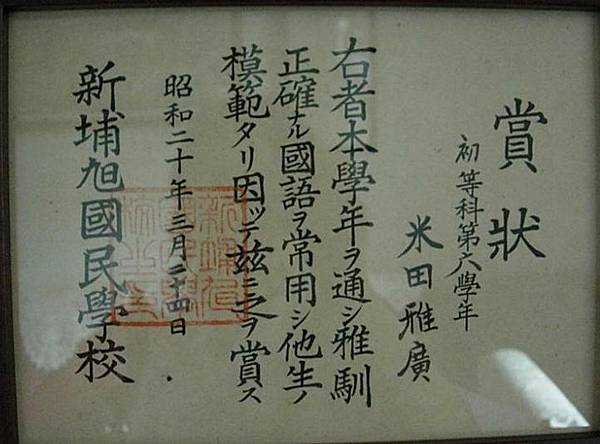 賞狀
初等科第六學年
米田雅廣
右者本學年ヲ通シ雅馴
正確ナル國語ヲ常用シ他生ノ
模範タリ因ッテ茲ニ之ヲ賞ス
昭和二十年三月二十四日
新埔旭國民學校